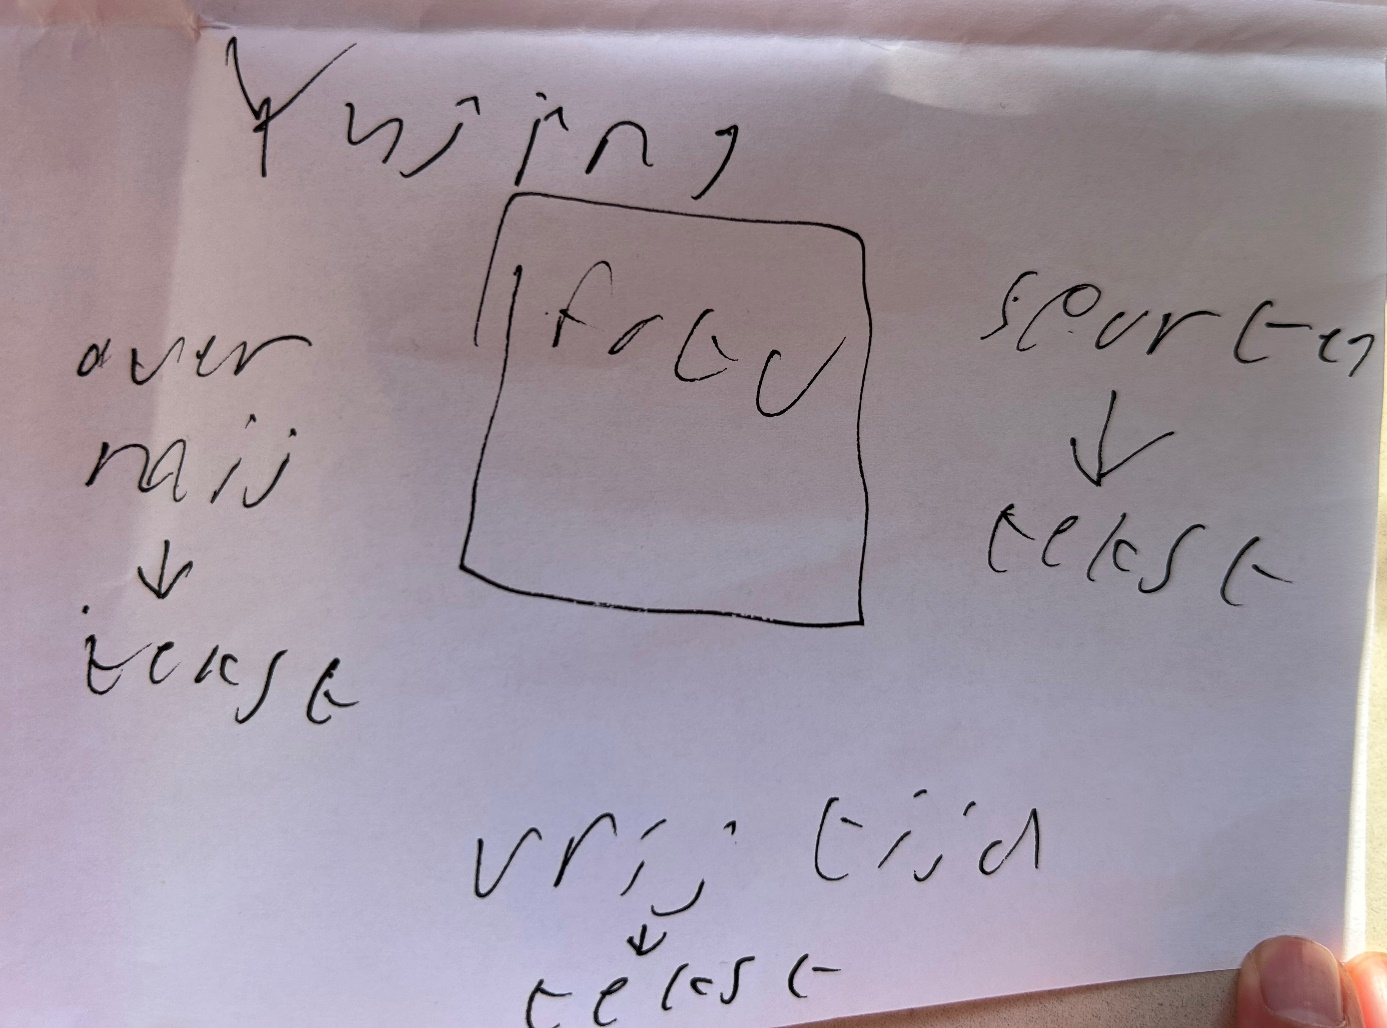 foto
over
mij
↓
tekst
starten
↓
tekst
vrij tijd
↓
tekst